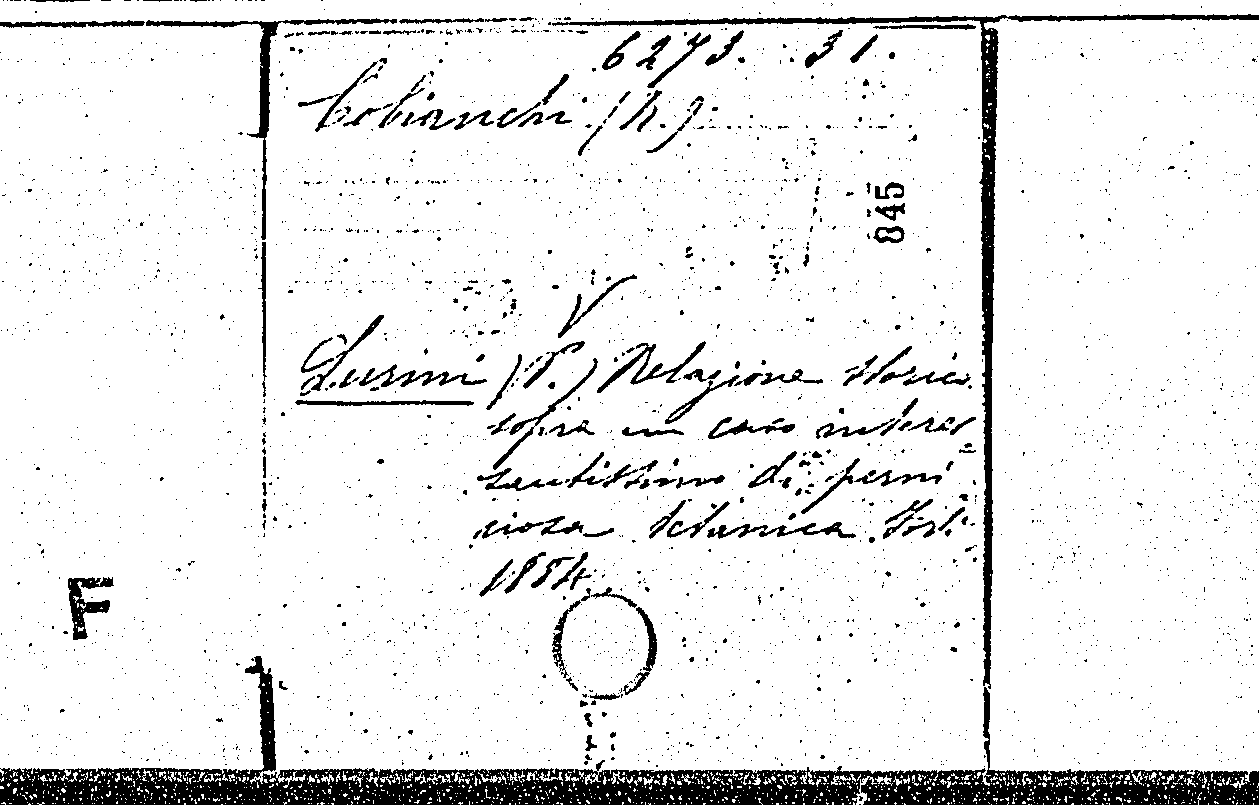 6273. 31.
Cobianchi (N.)
845
V
Lusini (V.) Relazione storica
sopra un caso interes
santissimo di perni
ciosa tetanica. Forli
1884
F